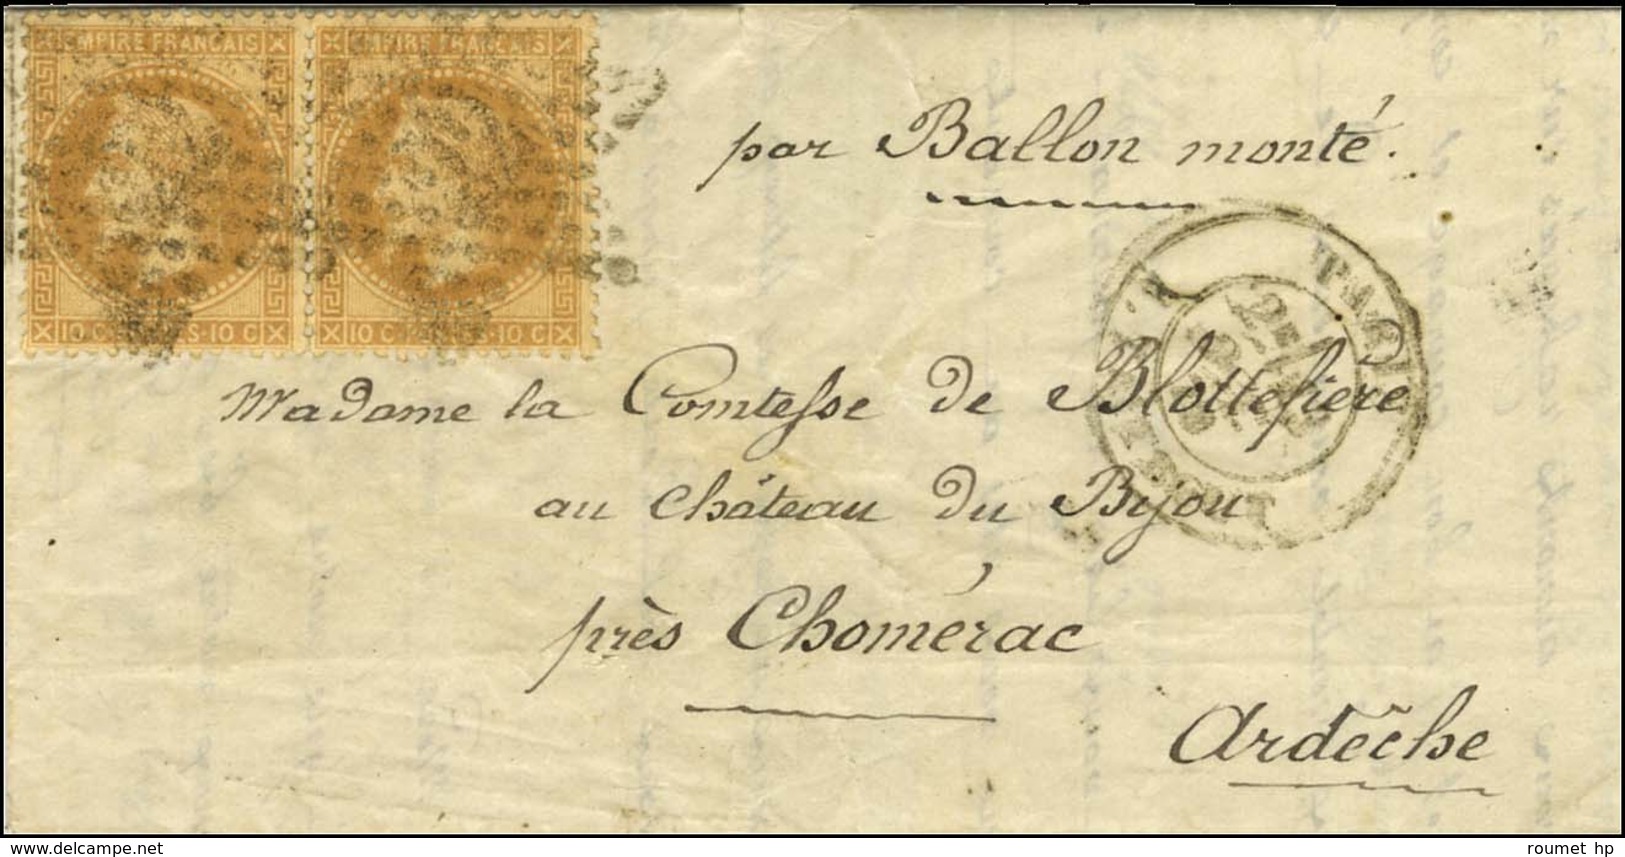 EMPIRE FRANCAIS EMPIRE FRANCAIS
10 C 10 C 10 C 10 C
par Ballon monté.
PARIS
Madame la Comtesse de Blottefière
au château du Bijou
près Chomérac
Ardêche
roumet hp